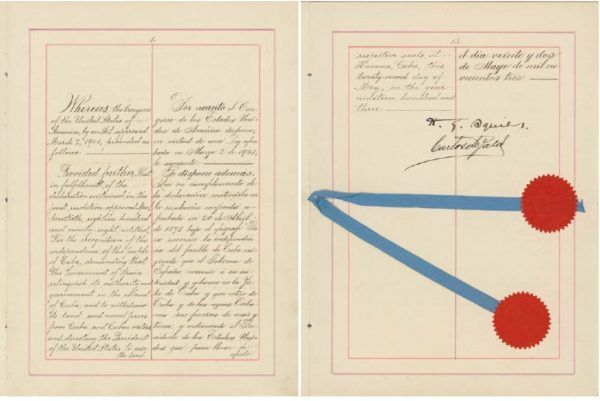 4.
Whereas the Congress
of the United States of
America, by an Act approved
March 2, 1901, provided as
follows:
Provided further, That
in fulfillment of the
declaration contained in the
joint resolution approved April
twentieth, eighteen hundred
and ninety-eight, entitled,
"For the recognition of the
independence of the people
of Cuba, demanding that
the Government of Spain
relinquish its authority and
government in the island
of Cuba, and to withdraw
its land and naval forces
from Cuba and Cuban waters,
and directing the President
of the United States to use
the land
Por cuanto el Con-
greso de los Estados Uni-
dos de América dispuso,
en virtud de una Ley apro-
bada en Marzo 2 de 1901,
lo siguiente:
Se dispone además,
Que en cumplimiento de
la declaración contenida en
la resolución conjunta a-
probada en 20 de Abril
de 1898 bajo el epígrafe "Pa-
ra reconocer la independen-
cia del pueblo de Cuba exi-
giendo que el Gobierno de
España renuncie á su au-
toridad y gobierno en la Is-
la de Cuba y que retire de
Cuba y de las aguas Cuba-
nas sus fuerzas de mar y
tierra y ordenando al Pre-
sidente de los Estados Uni-
dos que para llevar á
efecto
13.
respective seals, at
Havana, Cuba, this
twenty-second day of
May, in the year
nineteen hundred and
three.
el día veinte y dos
de Mayo de mil no-
vecientos tres.
H. G. Squiers
Carlos de Zaldo